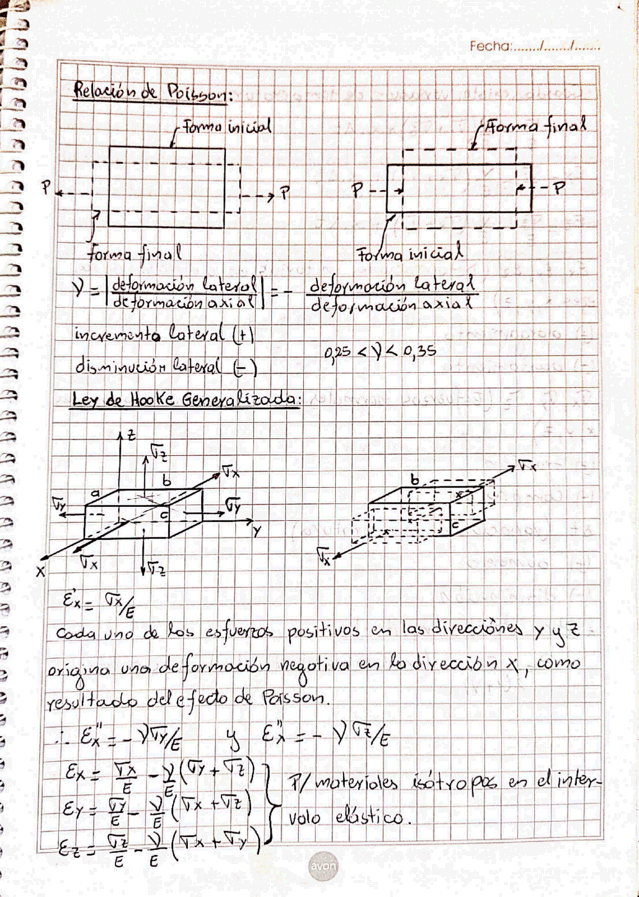 Fecha:......./......./.......
Relación de Poisson:
Forma inicial
Forma final
P P P P
Forma final
Forma inicial
ν = |deformación lateral / deformación axial| = - deformación lateral / deformación axial
incremento lateral (+)
0,25 < ν < 0,35
disminución lateral (-)
Ley de Hooke Generalizada:
z σz b σx a σy c σy y x σx σz
b σx c σx
ε'x = σx/E
Cada uno de los esfuerzos positivos en las direcciónes y y z
origina una deformación negativa en la dirección x, como
resultado del efecto de Poisson.
∴ ε''x = - νσy/E y ε''x = - νσz/E
εx = σx/E - ν/E (σy + σz)
εy = σy/E - ν/E (σx + σz)
εz = σz/E - ν/E (σx + σy)
P/ materiales isótropos en el inter-
valo elástico.
avon